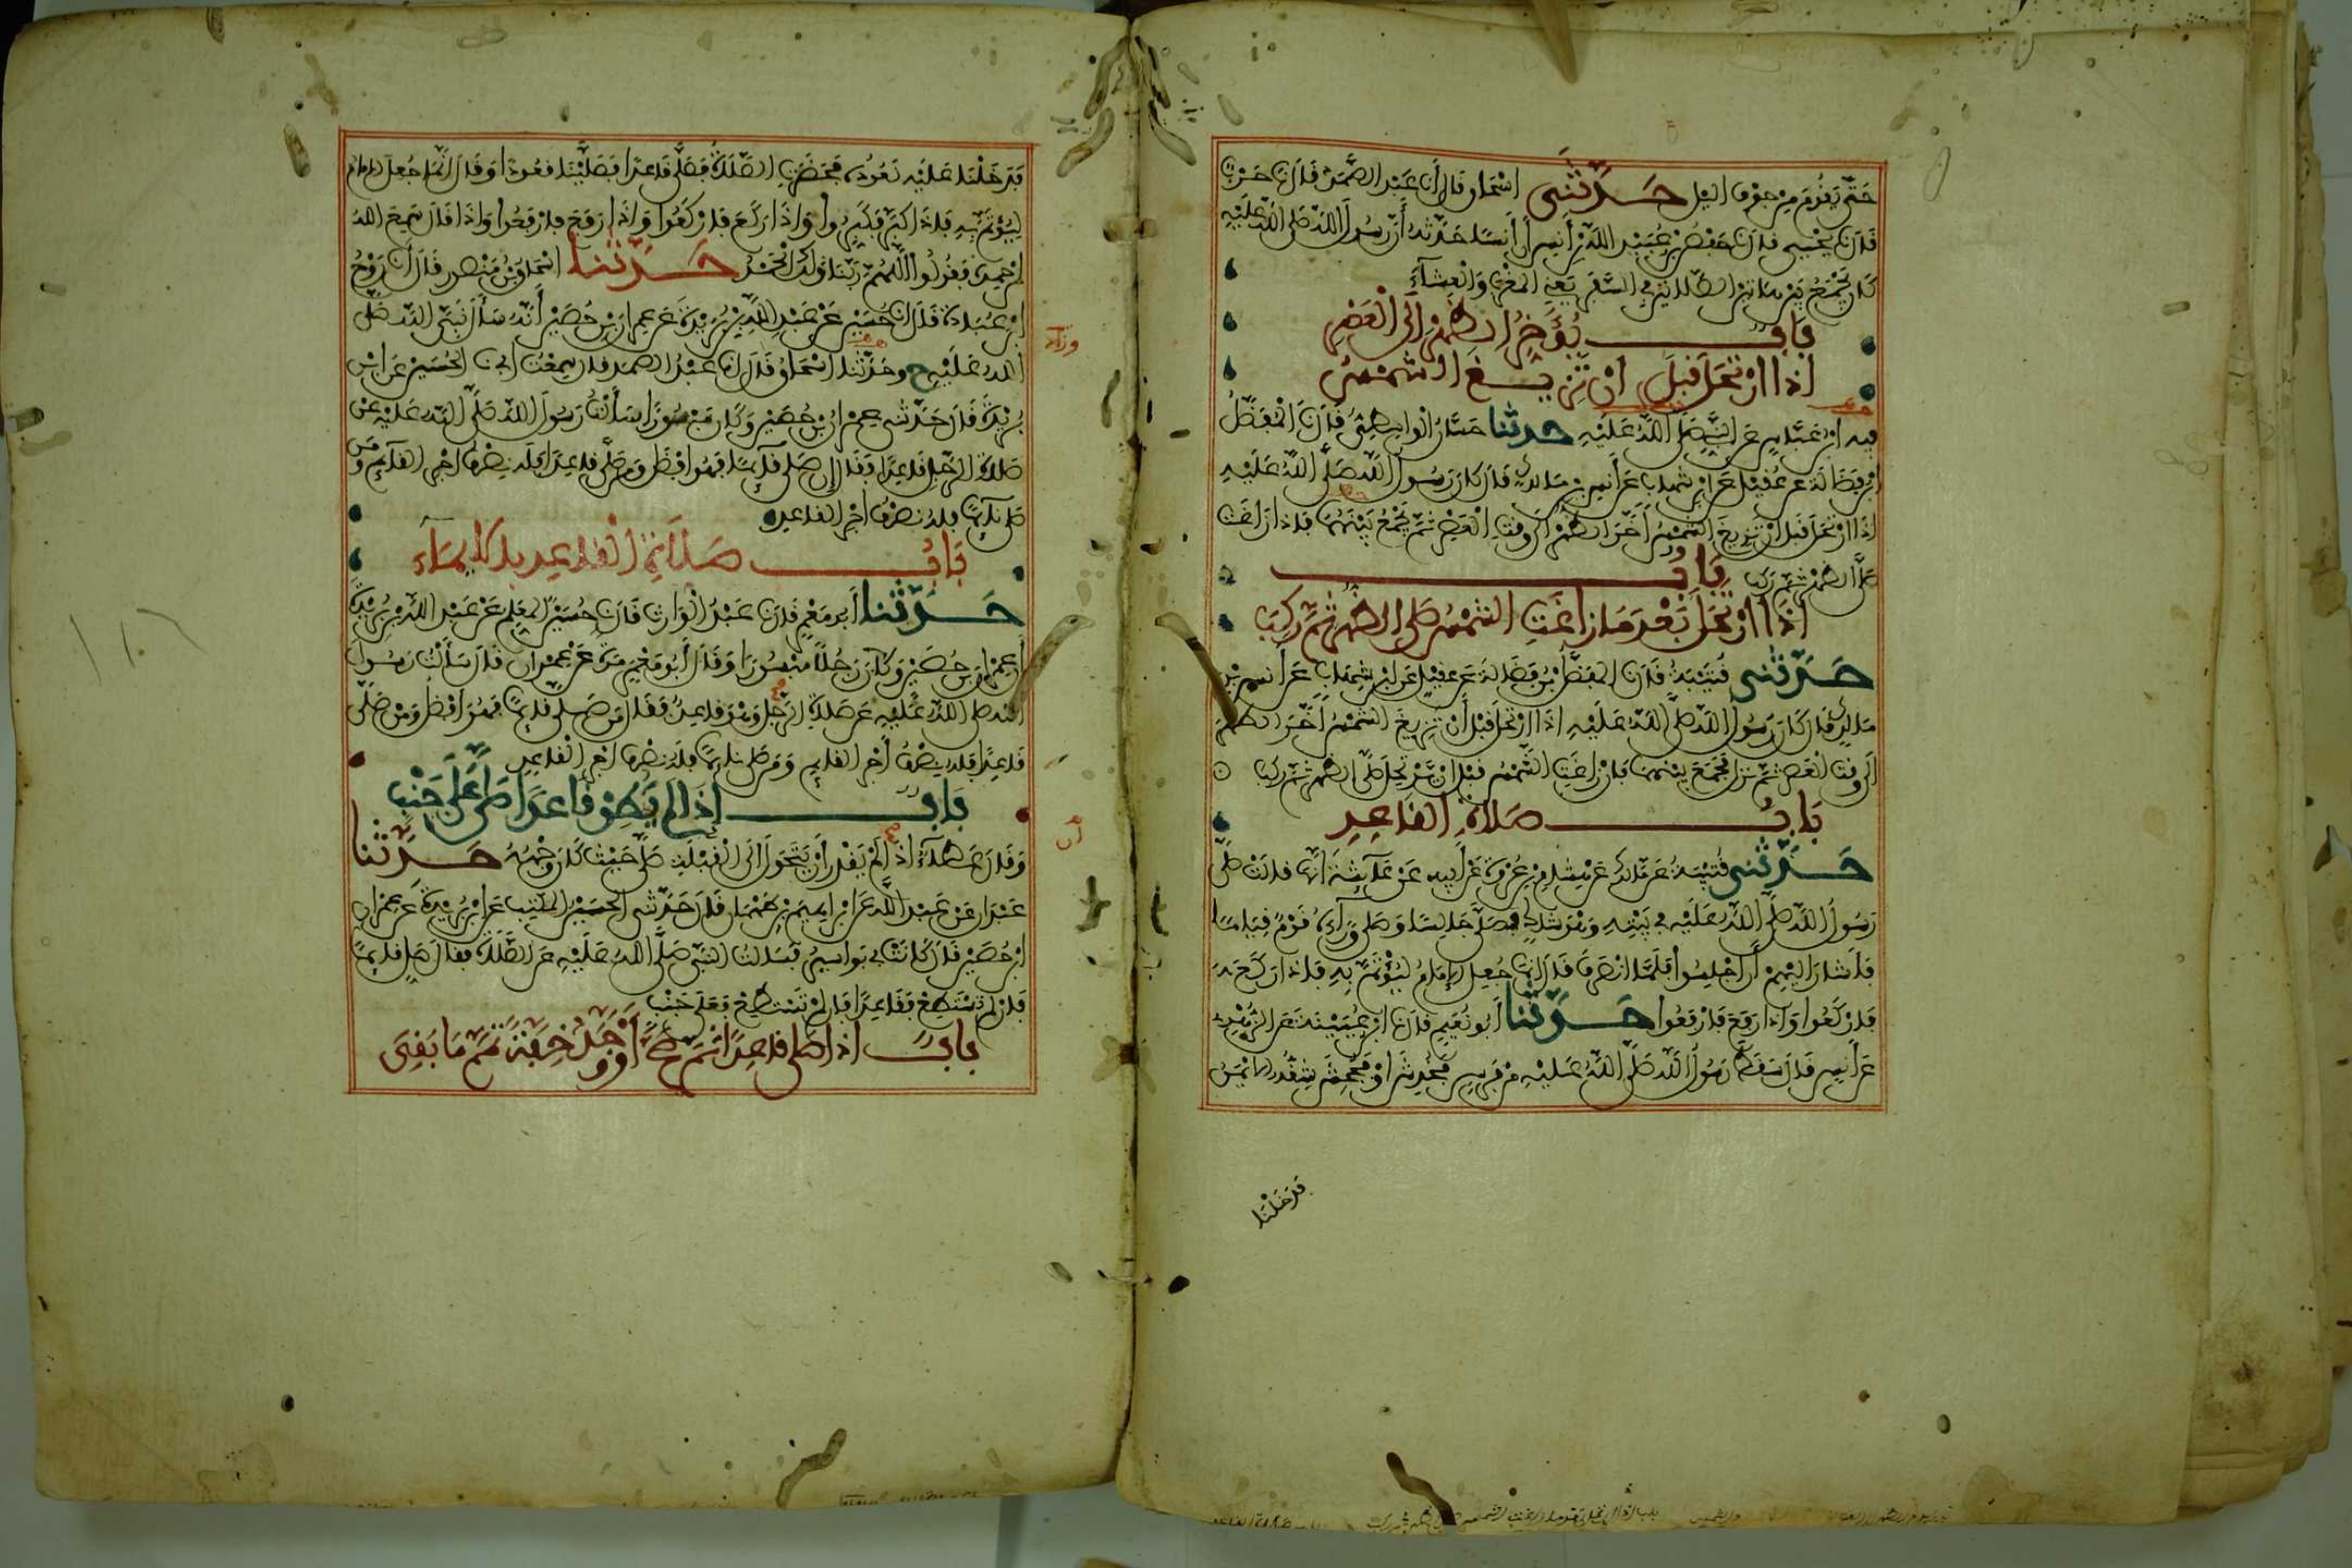 حَتَّى يَقُومَ مِنْ جَوْفِ اليْلِ حَدَّثَنِي اسْحَاق قَالَ أَنَا عَبْدُ الصَّمَدِ قَالَ نَا حَرْبٌ
قَالَ نَا يَحْيَى قال نَا حَفْصُ بْنُ عُبَيْدِ اللَّهِ بْنِ أَنَسٍ أَنَّ أَنَسًا حَدَّثَهُ أَنَّ رَسُولَ اللَّهِ صَلَّى اللَّهُ عَلَيْهِ
كَانَ يَجْمَعُ بَيْنَ هَاتَيْنِ الصَّلَاتَيْنِ فِي السَّفَرِ يَعْنِي الْمَغْرِبَ وَالْعِشَاءَ
بَابٌ يُؤَخِّرُ الظُّهْرَ إِلَى الْعَصْرِ
إِذَا ارْتَحَلَ قَبْلَ أَنْ تَزِيغَ الشَّمْسُ
فيه ابْنُ عَبَّاسٍ عَنِ النَّبِيِّ صَلَّى اللَّهُ عَلَيْهِ حدثنا حَسَّانُ الْوَاسِطِيُّ قَالَ نَا الْمُفَضَّلُ
ابْنُ فَضَالَةَ عَنْ عُقَيْلٍ عَنِ ابْنِ شِهَابٍ عَنْ أَنَسِ بْنِ مَالِكٍ قَالَ كَانَ رَسُولُ اللَّهِ صَلَّى اللَّهُ عَلَيْهِ
إِذَا ارْتَحَلَ قَبْلَ أَنْ تَزِيغَ الشَّمْسُ أَخَّرَ الظُّهْرَ إِلَى وَقْتِ الْعَصْرِ ثُمَّ يَجْمَعُ بَيْنَهُمَا فَإِذَا زَاغَتْ
صَلَّى الظُّهْرَ ثُمَّ رَكِبَ بَابٌ
إِذَا ارْتَحَلَ بَعْدَ مَا زَاغَتِ الشَّمْسُ صَلَّى الظُّهْرَ ثُمَّ رَكِبَ
حَدَّثَنِي قُتَيْبَةُ قَالَ نَا الْمُفَضَّلُ بْنُ فَضَالَةَ عَنْ عُقَيْلٍ عَنِ ابْنِ شِهَابٍ عَنْ أَنَسِ بْنِ
مَالِكٍ قَالَ كَانَ رَسُولُ اللَّهِ صَلَّى اللَّهُ عَلَيْهِ إِذَا ارْتَحَلَ قَبْلَ أَنْ تَزِيغَ الشَّمْسُ أَخَّرَ الظُّهْرَ
إِلَى وَقْتِ الْعَصْرِ ثُمَّ نَزَلَ فَجَمَعَ بَيْنَهُمَا فَإِنْ زَاغَتِ الشَّمْسُ قَبْلَ أَنْ يَرْتَحِلَ صَلَّى الظُّهْرَ ثُمَّ رَكِبَ
بَابُ صَلَاةِ الْقَاعِدِ
حَدَّثَنِي قُتَيْبَةُ عَنْ مَالِكٍ عَنْ هِشَامِ بْنِ عُرْوَةَ عَنْ أَبِيهِ عَنْ عَائِشَةَ أَنَّهَا قَالَتْ صَلَّى
رَسُولُ اللَّهِ صَلَّى اللَّهُ عَلَيْهِ فِي بَيْتِهِ وَهْوَ شَاكٍ فَصَلَّى جَالِسًا وَصَلَّى وَرَاءَهُ قَوْمٌ قِيَامًا
فَأَشَارَ إِلَيْهِمْ أَنِ اجْلِسُوا فَلَمَّا انْصَرَفَ قَالَ إِنَّمَا جُعِلَ الْإِمَامُ لِيُؤْتَمَّ بِهِ فَإِذَا رَكَعَ
فَارْكَعُوا وَإِذَا رَفَعَ فَارْفَعُوا حَدَّثَنَا أَبُو نُعَيْمٍ قَالَ نَا ابْنُ عُيَيْنَةَ عَنِ الزُّهْرِيِّ
عَنْ أَنَسٍ قَالَ سَقَطَ رَسُولُ اللَّهِ صَلَّى اللَّهُ عَلَيْهِ مِنْ فَرَسٍ فَخُدِشَ أَوْ فَجُحِشَ شِقُّهُ الْأَيْمَنُ
فَدَخَلْنَا
فَدَخَلْنَا عَلَيْهِ نَعُودُهُ فَحَضَرَتِ الصَّلَاةُ فَصَلَّى قَاعِدًا فَصَلَّيْنَا قُعُودًا وَقَالَ إِنَّمَا جُعِلَ الإمام
لِيُؤْتَمَّ بِهِ فَإِذَا كَبَّرَ فَكَبِّرُوا وَإِذَا رَكَعَ فَارْكَعُوا وَإِذَا رَفَعَ فَارْفَعُوا وَإِذَا قَالَ سَمِعَ اللَّهُ
لِمَنْ حَمِدَهُ فَقُولُوا اللَّهُمَّ رَبَّنَا وَلَكَ الْحَمْدُ حَدَّثَنَا اسْحَاقُ بْنُ مَنْصُورٍ قَالَ أَنَا رَوْحُ
ابْنُ عُبَادَةَ قَالَ أَنَا حُسَيْنٌ عَنْ عَبْدِ اللَّهِ بْنِ بُرَيْدَةَ عَنْ عِمْرَانَ بْنِ حُصَيْنٍ أَنَّهُ سَأَلَ نَبِيَّ اللَّهِ صَلَّى
اللَّهُ عَلَيْهِ ح وحَدَّثَنَا اسْحَاقُ قَالَ أَنَا عَبْدُ الصَّمَدِ قَالَ سَمِعْتُ أَبِي نَا الْحُسَيْنُ عَنِ ابْنِ
بُرَيْدَةَ قَالَ حَدَّثَنِي عِمْرَانُ بْنُ حُصَيْنٍ وَكَانَ مَبْسُورًا سَأَلْتُ رَسُولَ اللَّهِ صَلَّى اللَّهُ عَلَيْهِ عَنْ
صَلَاةِ الرَّجُلِ قَاعِدًا فَقَالَ إِنْ صَلَّى قَائِمًا فَهُوَ أَفْضَلُ وَمَنْ صَلَّى قَاعِدًا فَلَهُ نِصْفُ أَجْرِ الْقَائِمِ وَمَنْ
صَلَّى نَائِمًا فَلَهُ نِصْفُ أَجْرِ الْقَاعِدِ
بَابُ صَلَاةِ الْقَاعِدِ بِالْإِيمَاءِ
حَدَّثَنَا أَبُو مَعْمَرٍ قَالَ نَا عَبْدُ الْوَارِثِ قَالَ نَا حُسَيْنٌ الْمُعَلِّمُ عَنْ عَبْدِ اللَّهِ بْنِ بُرَيْدَةَ
أَنَّ عِمْرَانَ بْنَ حُصَيْنٍ وَكَانَ رَجُلًا مَبْسُورًا وَقَالَ أَبُو مَعْمَرٍ مَرَّةً عَنْ عِمْرَانَ قَالَ سَأَلْتُ رَسُولَ
اللَّهِ صَلَّى اللَّهُ عَلَيْهِ عَنْ صَلَاةِ الرَّجُلِ وَهْوَ قَاعِدٌ فَقَالَ مَنْ صَلَّى قَائِمًا فَهُوَ أَفْضَلُ وَمَنْ صَلَّى
قَاعِدًا فَلَهُ نِصْفُ أَجْرِ الْقَائِمِ وَمَنْ صَلَّى نَائِمًا فَلَهُ نِصْفُ أَجْرِ الْقَاعِدِ
بَابٌ إِذَا لَمْ يُطِقْ قَاعِدًا صَلَّى عَلَى جَنْبٍ
وَقَالَ عَطَاءٌ إِذَا لَمْ يَقْدِرْ أَنْ يَتَحَوَّلَ إِلَى الْقِبْلَةِ صَلَّى حَيْثُ كَانَ وَجْهُهُ حَدَّثَنَا
عَبْدَانُ عَنْ عَبْدِ اللَّهِ عَنْ إِبْرَاهِيمَ بْنِ طَهْمَانَ قَالَ حَدَّثَنِي الْحُسَيْنُ الْمُكْتِبُ عَنِ ابْنِ بُرَيْدَةَ عَنْ عِمْرَانَ
ابْنِ حُصَيْنٍ قَالَ كَانَتْ بِي بَوَاسِيرُ فَسَأَلْتُ النَّبِيَّ صَلَّى اللَّهُ عَلَيْهِ عَنِ الصَّلَاةِ فَقَالَ صَلِّ قَائِمًا
فَإِنْ لَمْ تَسْتَطِعْ فَقَاعِدًا فَإِنْ لَمْ تَسْتَطِعْ فَعَلَى جَنْبٍ
بَابٌ إِذَا صَلَّى قَاعِدًا ثُمَّ صَحَّ أَوْ وَجَدَ خِفَّةً تَمَّمَ مَا بَقِيَ